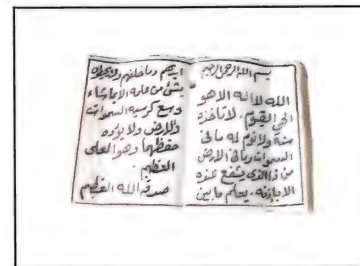 بسم الله الرحمن الرحيم
الله لا اله الا هو
الحي القيوم. لا تأخذه
سنة ولا نوم له ما فى
السموات وما فى الارض
من ذا الذى يشفع عنده
الا بإذنه. يعلم ما بين
ايديهم وما خلفهم ولا يحيطون
بشئ من علمه الا بما شاء
وسع كرسيه السموات
والارض ولا يؤده
حفظهما وهو العلى
العظيم.
صدق الله العظيم